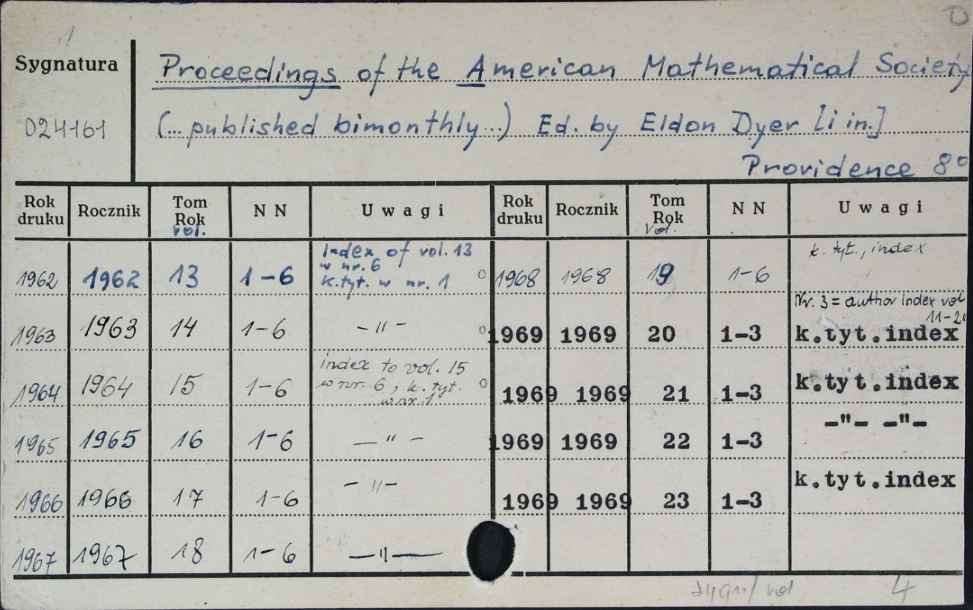 D
Sygnatura
024161
Proceedings of the American Mathematical Society
(... published bimonthly...) Ed. by Eldon Dyer [i in.]
Providence 8°
Rok druku Rocznik Tom Rok vol. N N Uwagi Rok druku Rocznik Tom Rok Vol. N N Uwagi
1962 1962 13 1-6 Index of vol. 13 w nr. 6 k.tyt. w nr. 1 1968 1968 19 1-6 k. tyt., index
1963 1963 14 1-6 -"- 1969 1969 20 1-3 Nr. 3 = author index vol 11-20 k.tyt.index
1964 1964 15 1-6 index to vol. 15 w nr. 6, k. tyt. w nr. 1 1969 1969 21 1-3 k.tyt.index
1965 1965 16 1-6 -"- 1969 1969 22 1-3 -"- -"-
1966 1966 17 1-6 -"- 1969 1969 23 1-3 k.tyt.index
1967 1967 18 1-6 -"-
4